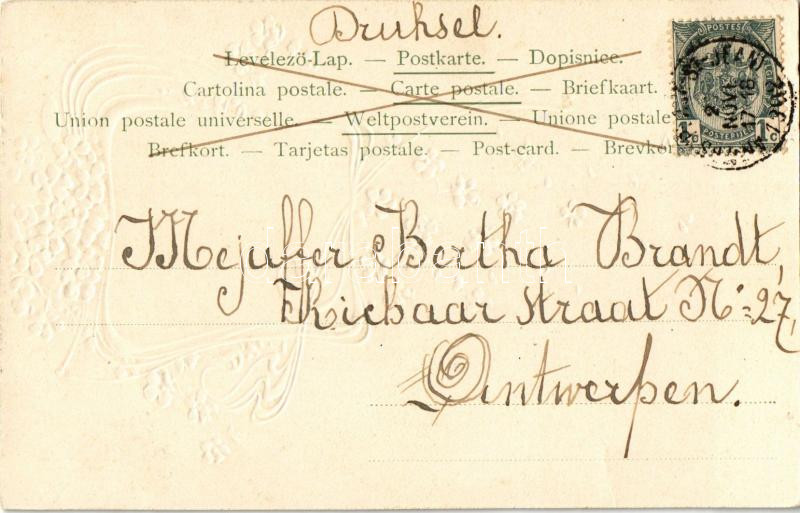 Druksel.
Levelező-Lap. — Postkarte. — Dopisnice.
Cartolina postale. — Carte postale. — Briefkaart. —
Union postale universelle. — Weltpostverein. — Unione postale
Brefkort. — Tarjetas postale. — Post-card. — Brevkor
POSTES
POSTERIJEN
1
NOVE
17-18
Mejuffer Bertha Brandt,
straat No 27,
Antwerpen.